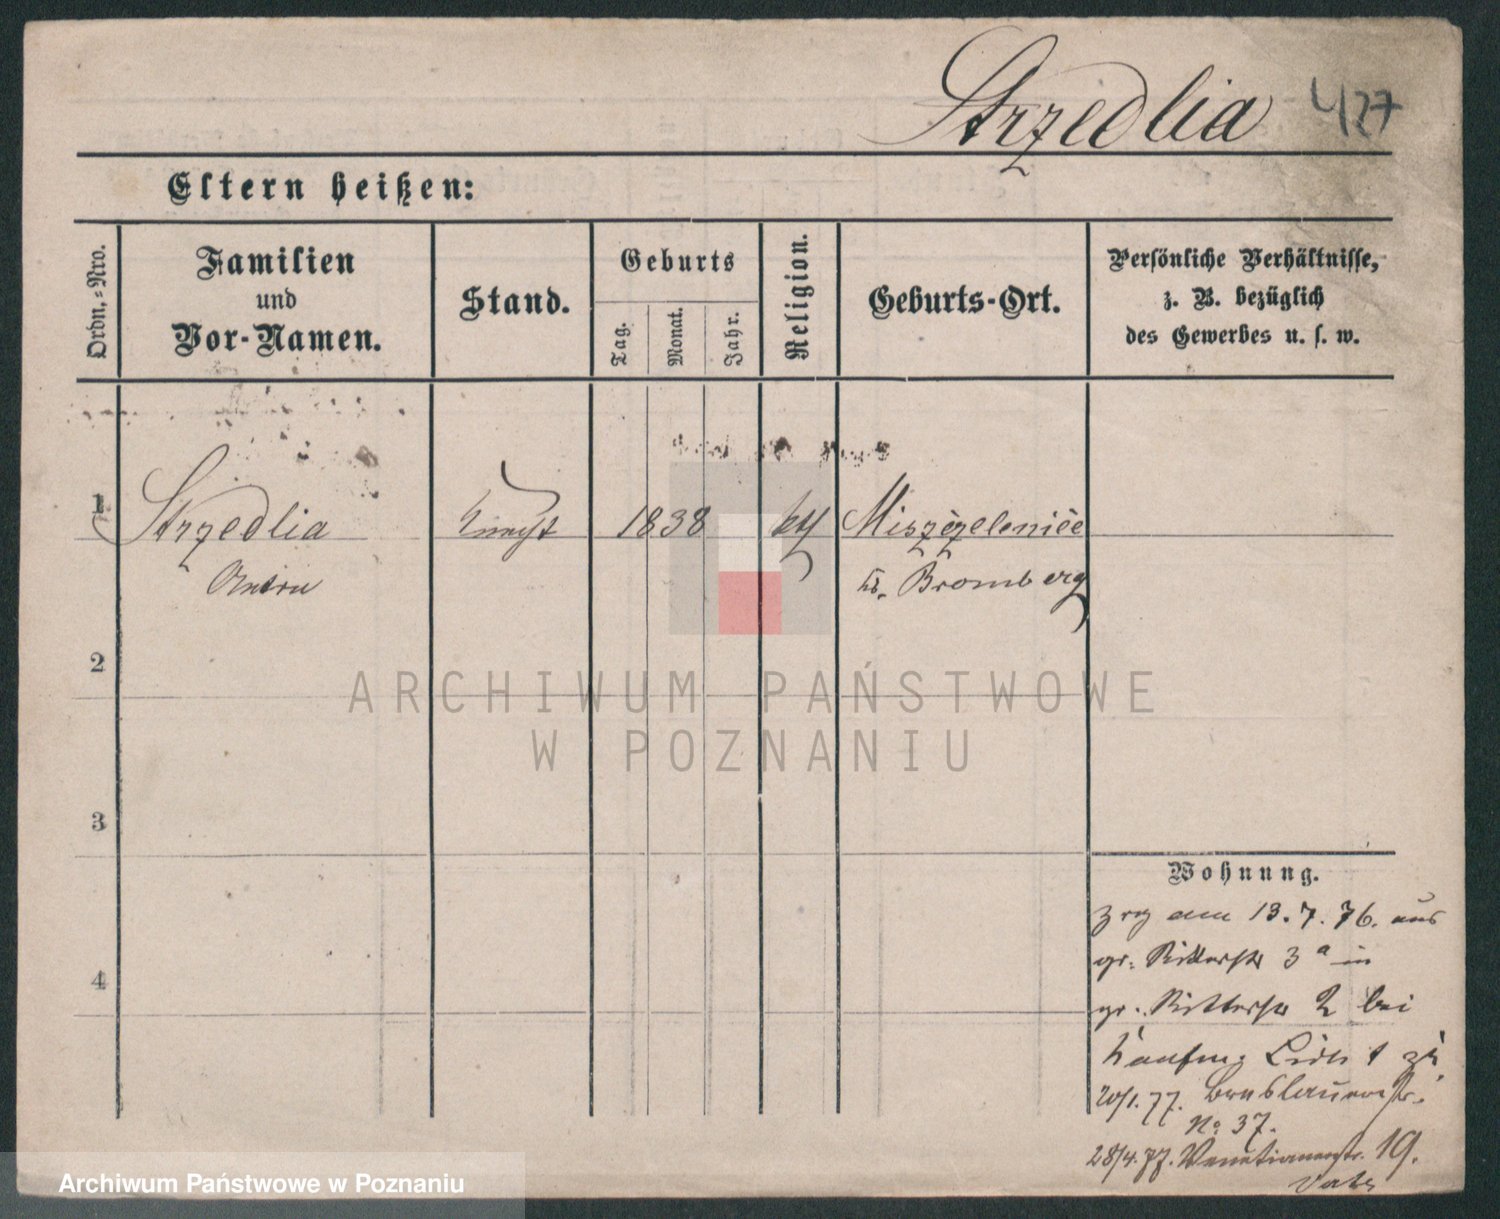 Strzedlia 427
Eltern heißen:
Ordn.-Nro.
Familien
und
Vor-Namen.
Stand.
Geburts
Tag.
Monat.
Jahr.
Religion.
Geburts-Ort.
Persönliche Verhältnisse,
z. B. bezüglich
des Gewerbes u. s. w.
1 Strzedlia Knecht 1838 kth
Anton Bromberg
2
3
4
Wohnung.
zog am 13.7.76. aus
gr. Ritterstr 3a in
gr. Ritterstr 2 bei
20/1.77. Breslauerstr.
No 37.
28/4.77. Venetianerstr. 19.
ARCHIWUM PAŃSTWOWE
W POZNANIU
Archiwum Państwowe w Poznaniu